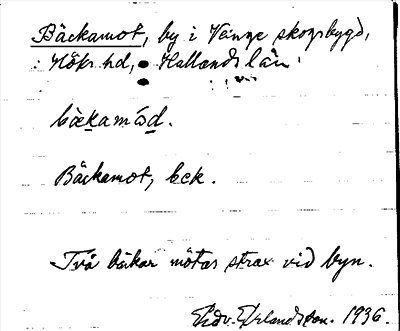 Bäckamot, by i Veinge skogsbygd,
Höks hd, Hallands län.
bäkamód.
Bäckamot, bck.
Två bäckar mötas strax vid byn.
Edv. Erlandsson. 1936.